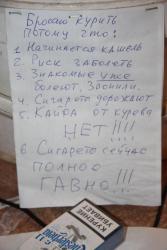 Бросаю курить
потому что:
1. Начинается кашель
2. Риск заболеть
3. Знакомые уже
болеют, Заснили.
4. Сигареты дорожают
5. Кайфа от курева
НЕТ!!!!
6. Сигареты сейчас
ПОЛНОЕ
ГАВНО!!!
КУРЕНИЕ
УБИВАЕТ